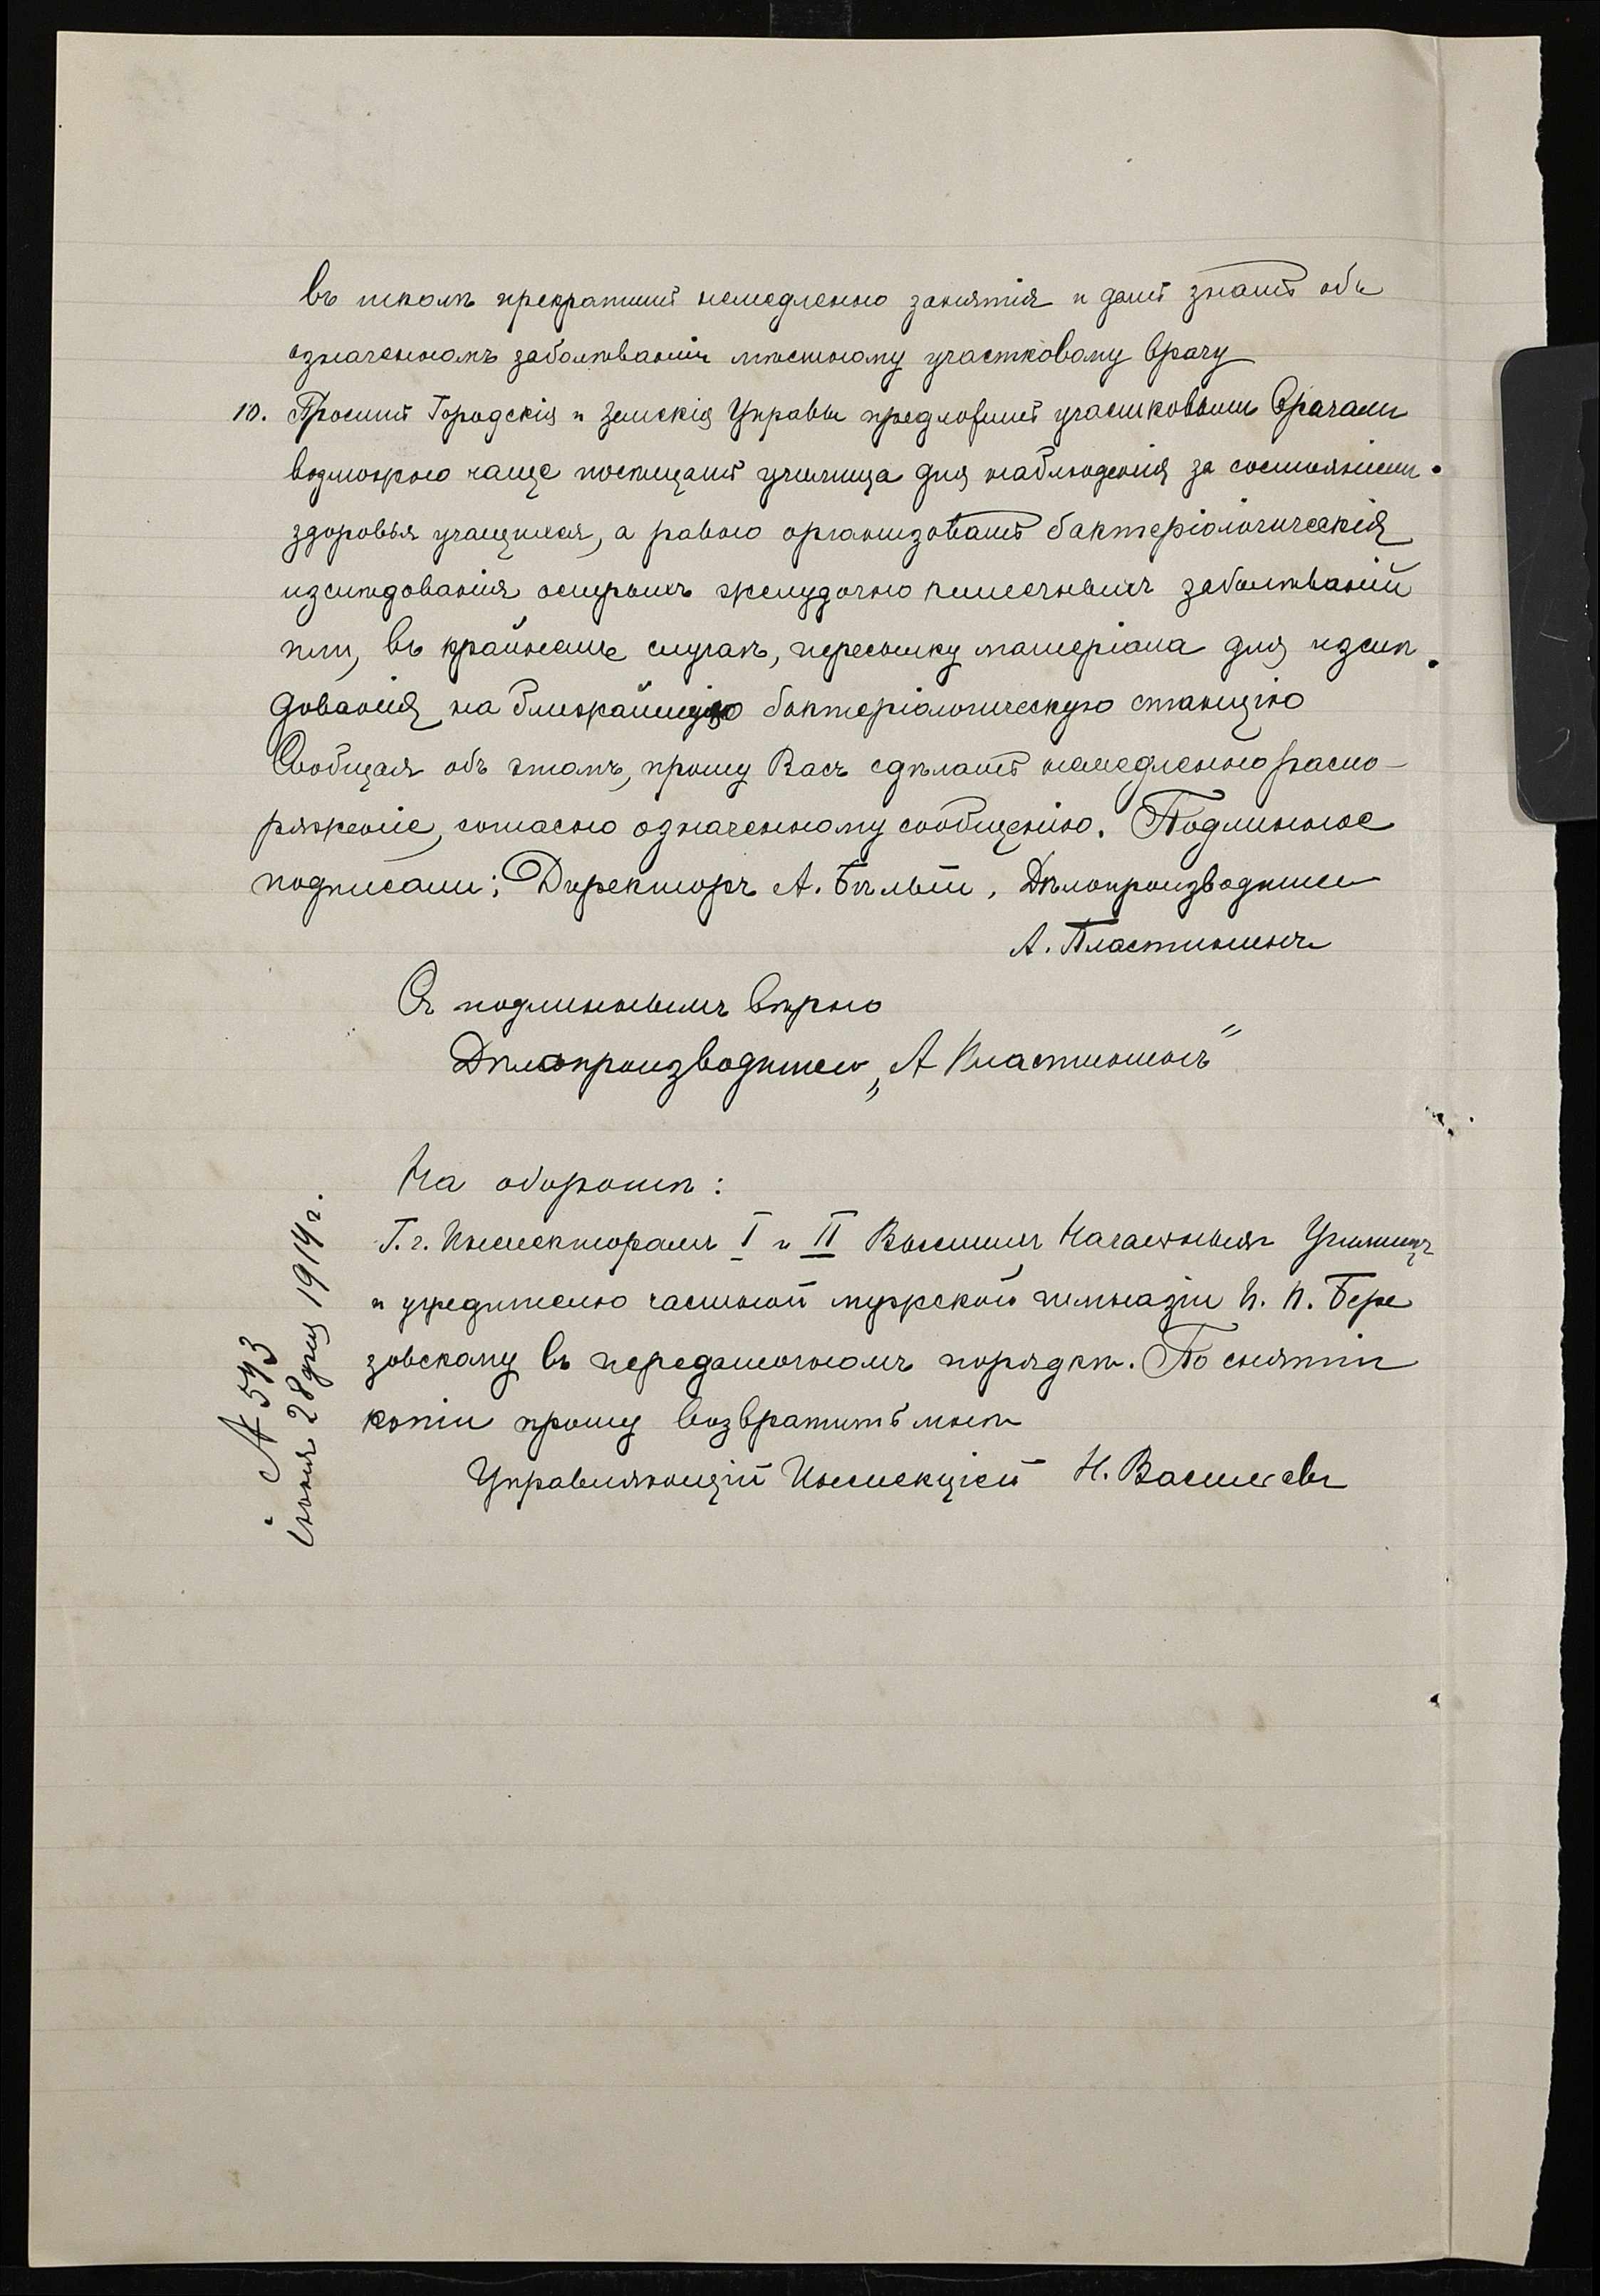 въ школѣ прекратить немедленно занятія и дать знать объ
означенномъ заболѣваніи мѣстному участковому врачу
10. Просить Городскія и Земскія Управы предложить участковымъ врачамъ
возможно чаще посѣщать училища для наблюденія за состояніемъ
здоровья учащихся, а равно организовать бактеріологическія
изслѣдованія острыхъ желудочно кишечныхъ заболѣваній
или, въ крайнемъ случаѣ, пересылку матеріала для изслѣ
дованія на ближайшую бактеріологическую станцію
Сообщая объ этомъ, прошу Васъ сдѣлать немедленно распо-
ряженіе, согласно означенному сообщенію. Подлинное
подписали: Директоръ А. Бѣлый, Дѣлопроизводитель
А. Пластининъ
Съ подлиннымъ вѣрно
Дѣлопроизводитель „А Пластининъ"
На оборотѣ:
Г.г. Инспекторамъ I и II Высшихъ Начальныхъ Училищъ
и учредителю частной мужской гимназіи П. П. Бере
зовскому въ передаточномъ порядкѣ. По снятіи
копіи прошу возвратить мнѣ
Управляющій Инспекціей Н. Васильевъ
№ 593
іюня 28 дня 1914 г.